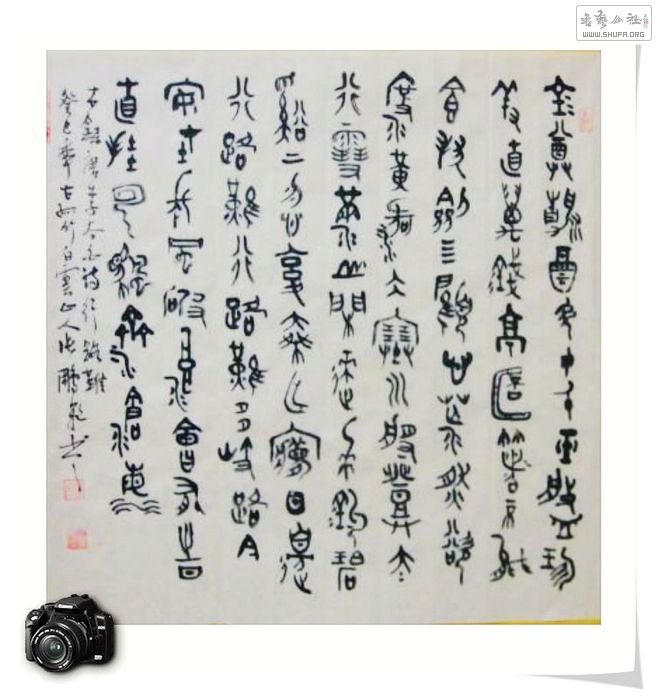 金樽清酒斗十千玉盤珍
羞直萬錢停杯投箸不能
食拔劍四顧心茫然欲
渡黃河冰塞川將登太
行雪滿山閒來垂釣碧
溪上忽復乘舟夢日邊
行路難行路難多歧路今
安在長風破浪會有時
直挂雲帆濟滄海
右錄唐李太白詩行路難
癸巳 白雲山人張鵬 書
書藝公社
WWW.SHUFA.ORG